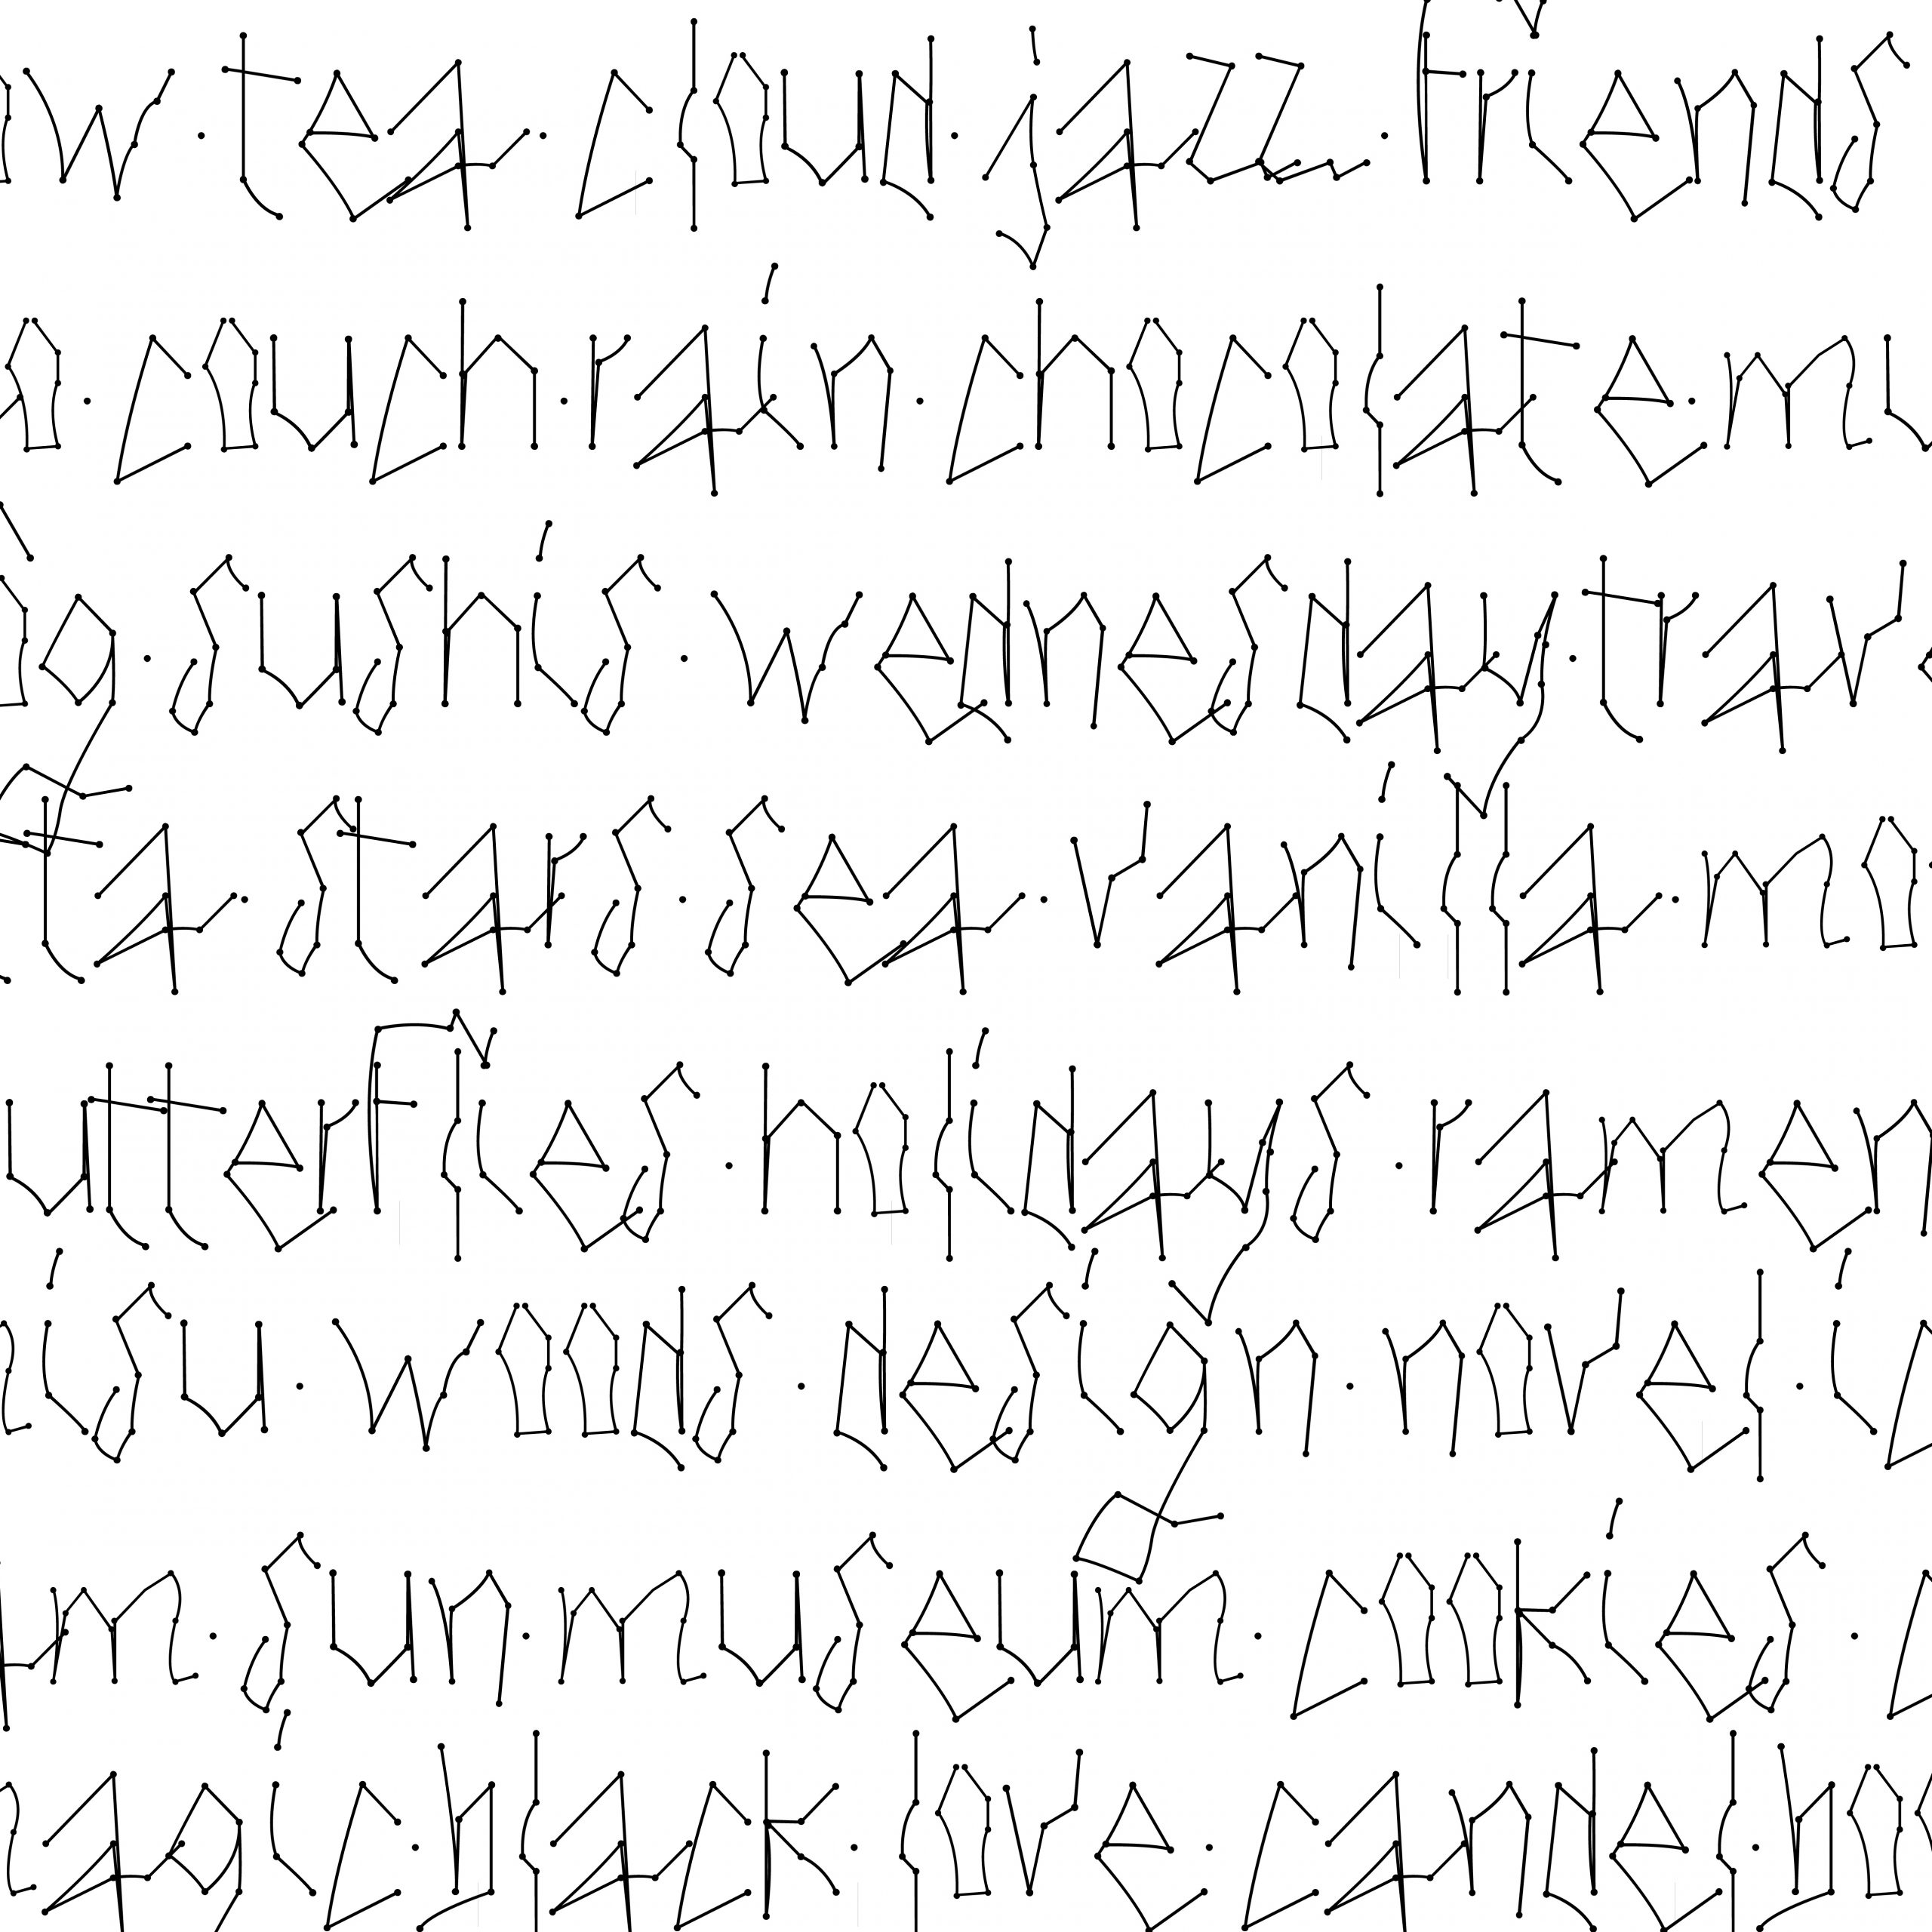 w · tea · cloud · jazz · friends
o · couch · rain · chocolate · mu
og · sushis · wednesday · trav
tta · stars · sea · vanilla · mo
utterflies · holidays · ramen
isu · woods · design · novel · ic
m · sun · museum · cookies · c
magic · black · love · candelbo